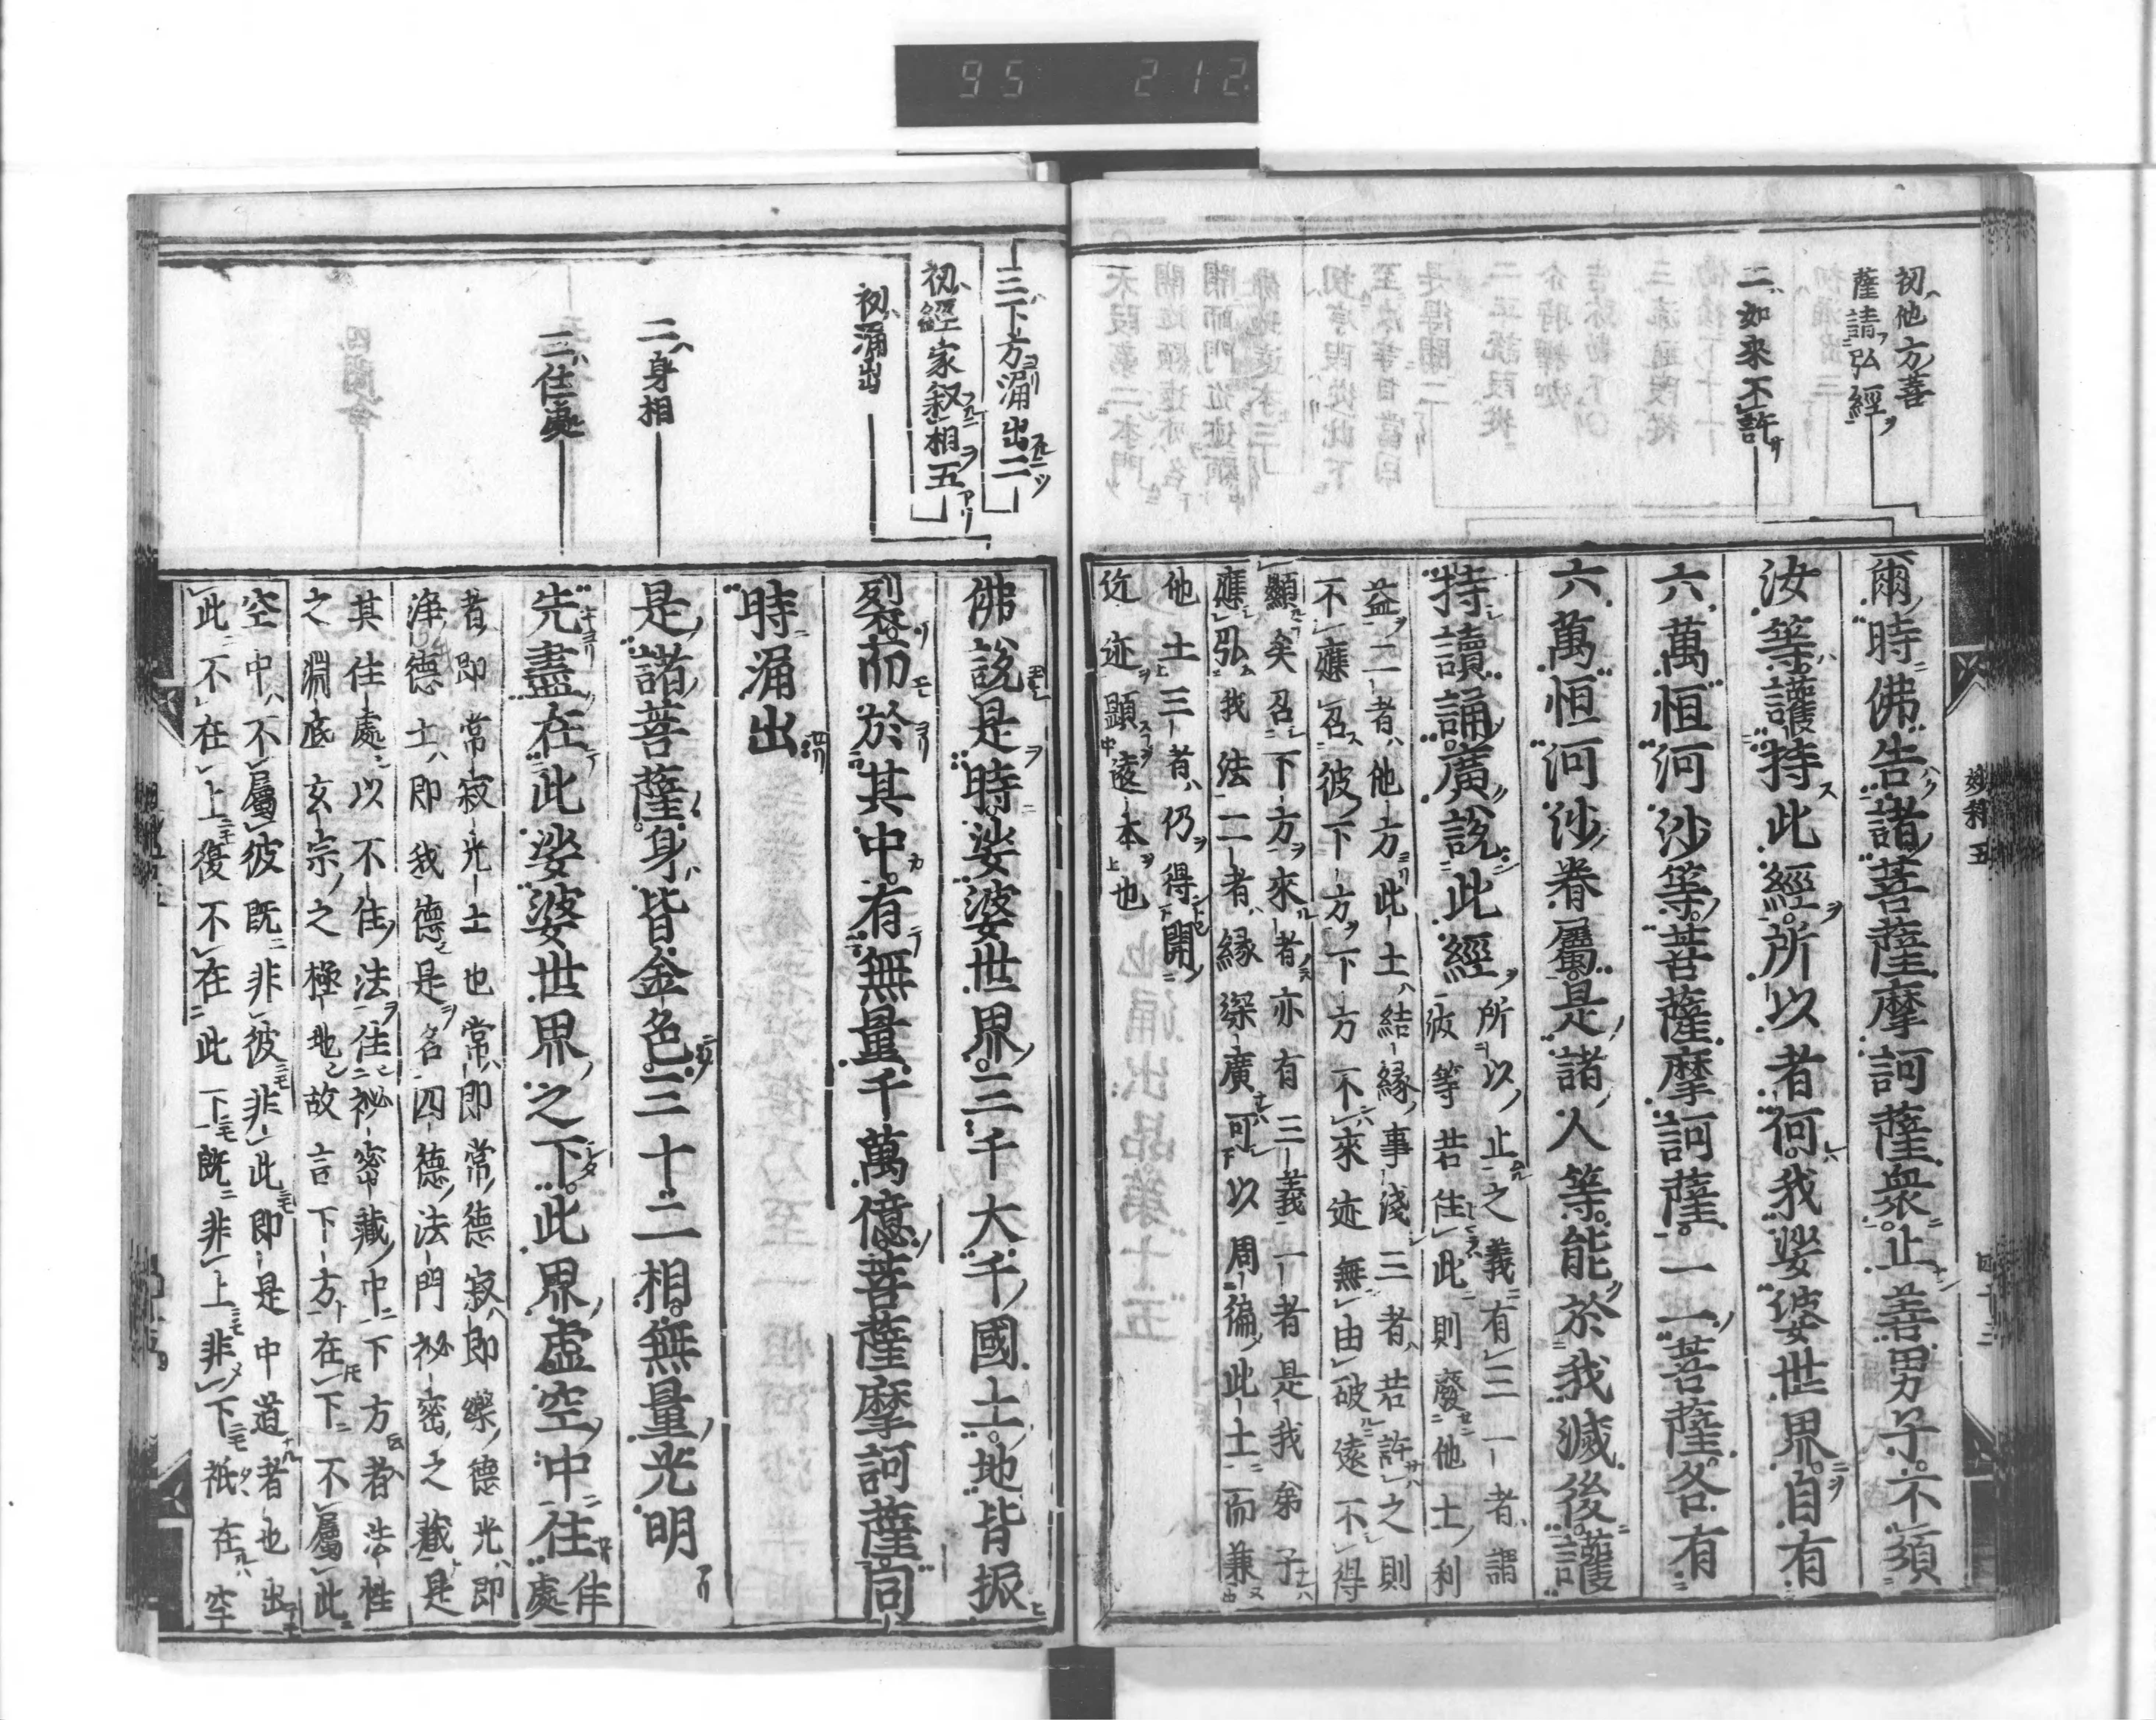 95 212
初他方菩
薩請弘經
二如來不許
爾時佛告諸菩薩摩訶薩衆止善男子不須
汝等護持此經所以者何我娑婆世界自有
六萬恒河沙等菩薩摩訶薩一一菩薩各有
六萬恒河沙眷屬是諸人等能於我滅後護
持讀誦廣說此經
所以止之義有三一者謂
彼等若住此則廢他土利
益二者他方此土結縁事淺三者若許之則
不應召彼下方下方不來迹無由破遠不得
顯矣召下方來者亦有三義一者是我弟子
應弘我法二者縁深廣可以周徧此土而兼
他土三者仍得開
近迹顯遠本也
妙科五
三下方涌出二
初經家叙相五
初涌出
二身相
三住處
佛說是時娑婆世界三千大千國土地皆振
裂而於其中有無量千萬億菩薩摩訶薩同
時涌出
是諸菩薩身皆金色三十二相無量光明
先盡在此娑婆世界之下此界虚空中住
住
處
者即常寂光土也常即常德寂即樂德光即
淨德土即我德是名四德法門祕密之藏是
其住處以不住法住祕密藏中下方者法性
之淵底玄宗之極地故言下方在下不屬此
空中不屬彼既非彼非此即是中道者也出
此不在上復不在此下既非上非下祇在空